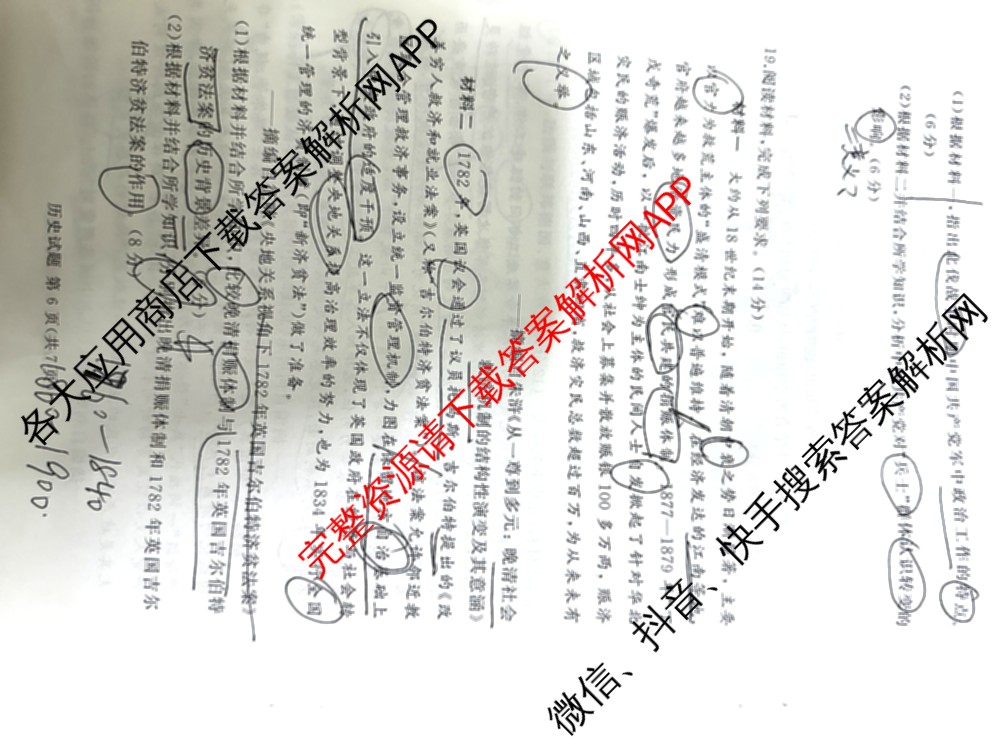 (1)根据材料一,指出北伐战中国共产党军中政治工作的特点。
(6分)
(2)根据材料二并结合所学知识,分析产党对“兵士”群体认识转变的
影响。(6分)
意义?
19.阅读材料,完成下列要求。(14分)
材料一 大约从18世纪末期开始,随着清朝之势日,主要
官为救荒主体的“盛清模式”难以普遍维持,在经济发达的江南
官府越来越多地民力,形成的捐赈体制。1877—1879
戊奇荒”爆发后,南士绅为主体的民间人士自发掀起了针对华北
灾民的赈济活动,历时四从社会上募集并散放赈银100多万两,赈济
区域包括山东、河南、山西、直,救济灾民总数超过百万,为从来未有
之义举。
——朱浒《从一尊到多元:晚清社会
机制的结构性演变及其意涵》
材料二 1782年,英国议会通过了议员托马斯·吉尔伯特提出的《改
善穷人救济和就业法案》(又称“吉尔伯特济贫法案
管理救济事务,设立统一监督管理机制,力图在自治基础上
引入政府的适度干预。这一立法不仅体现了英国政府在社会转
型背景下调适央地关系、提高治理效率的努力,也为1834年全国
统一管理的济(即“新济贫法”)做了准备。
——摘编《央地关系视角下1782年英国吉尔伯特济贫法案》
(1)根据材料并结合所学,比较晚清捐赈体制与1782年英国吉尔伯特
济贫法案的历史背景差分)
(2)根据材料并结合所学知识出晚清捐赈体制和1782年英国吉尔
伯特济贫法案的作用。(8分)
历史试题 第6页(共7
—1840
1900.
各大应用商店下载答案解析网APP
完整资源请下载答案解析网APP
微信、抖音、快手搜索答案解析网